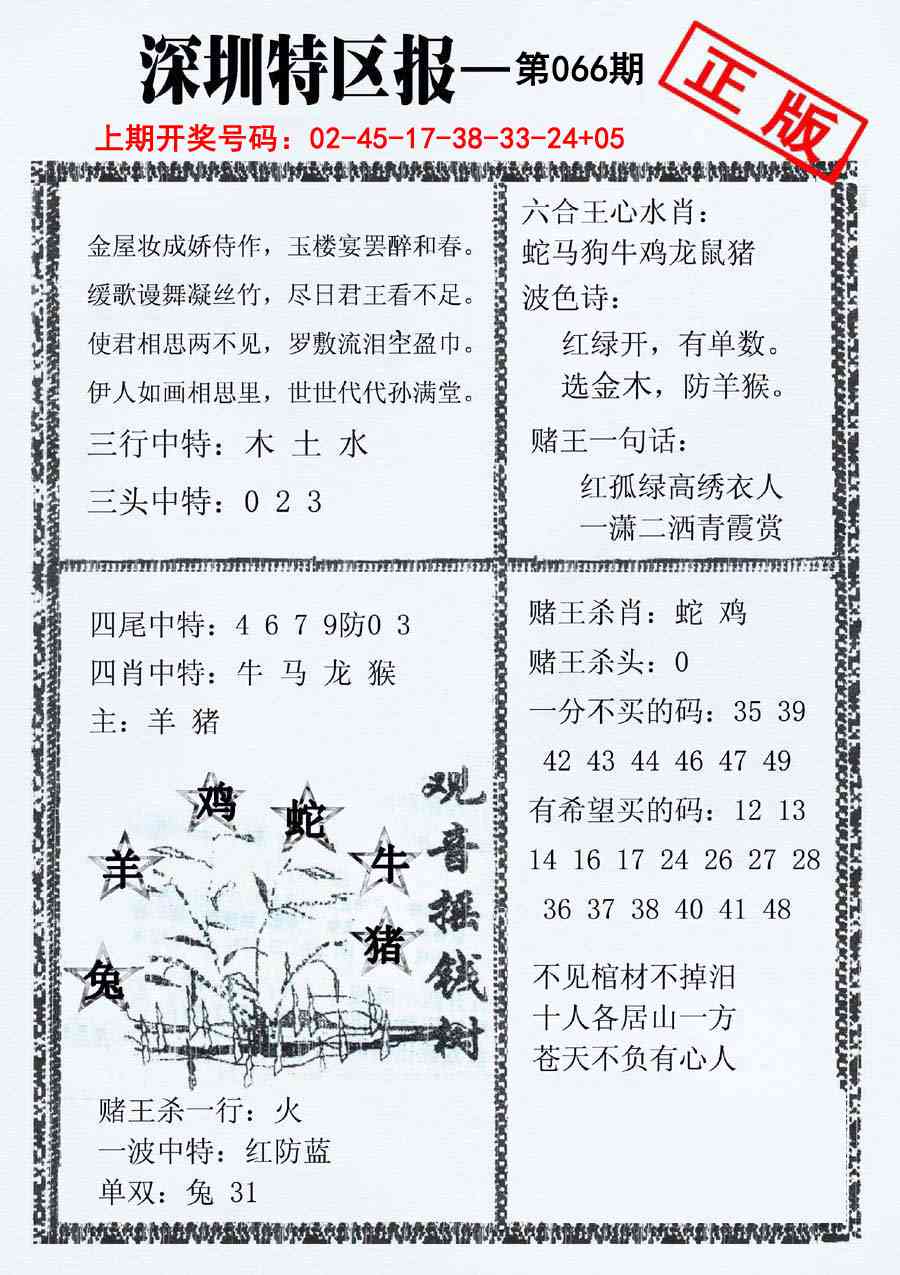 深圳特区报—第066期
正版
上期开奖号码：02-45-17-38-33-24+05
金屋妆成娇侍作，玉楼宴罢醉和春。
缓歌谩舞凝丝竹，尽日君王看不足。
使君相思两不见，罗敷流泪空盈巾。
伊人如画相思里，世世代代孙满堂。
三行中特：木 土 水
三头中特：0 2 3
六合王心水肖：
蛇马狗牛鸡龙鼠猪
波色诗：
红绿开，有单数。
选金木，防羊猴。
赌王一句话：
红孤绿高绣衣人
一潇二洒青霞赏
四尾中特：4 6 7 9防0 3
四肖中特：牛 马 龙 猴
主：羊 猪
鸡
蛇
羊
牛
猪
兔
观音摇钱树
赌王杀一行：火
一波中特：红防蓝
单双：兔 31
赌王杀肖：蛇 鸡
赌王杀头：0
一分不买的码：35 39
42 43 44 46 47 49
有希望买的码：12 13
14 16 17 24 26 27 28
36 37 38 40 41 48
不见棺材不掉泪
十人各居山一方
苍天不负有心人